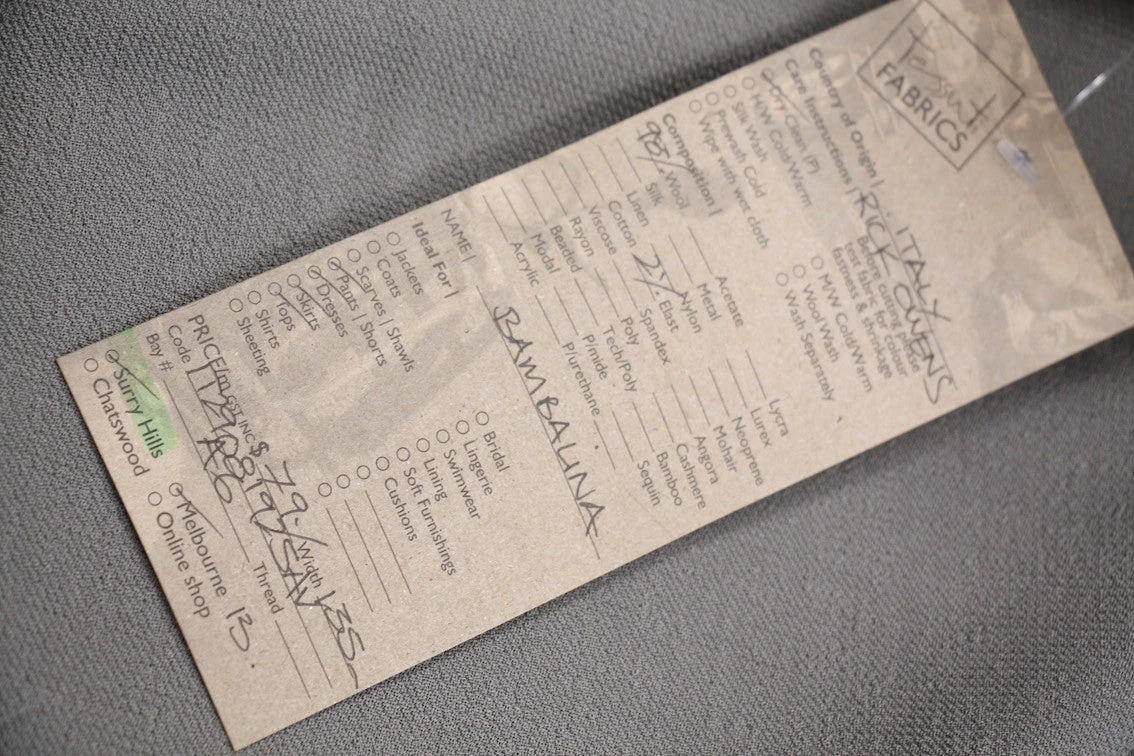 Tessuti
FABRICS
Country of Origin | ITALY
RICK OWENS
Care Instructions |
Before cutting please
test fabric for colour
fastness & shrinkage
Dry Clean (P)
H/W Cold/Warm
Silk Wash
Prewash Cold
Wipe with wet cloth
M/W Cold/Warm
Wool Wash
Wash Separately
Composition |
98% Wool
Silk
Linen
Cotton
Viscose
Rayon
Beaded
Modal
Acrylic
Acetate
Metal
Nylon
2% Elast
Spandex
Poly
Tech/Poly
P/mide
P/urethane
Lycra
Lurex
Neoprene
Mohair
Angora
Cashmere
Bamboo
Sequin
NAME | BAMBALINA
Ideal For |
Jackets
Coats
Scarves | Shawls
Pants | Shorts
Dresses
Skirts
Tops
Shirts
Sheeting
Bridal
Lingerie
Swimwear
Lining
Soft Furnishings
Cushions
PRICE/m GST INC $ 79. Width 135
Code |
Bay # A26
Thread
Surry Hills
Chatswood
Melbourne 13.
Online shop